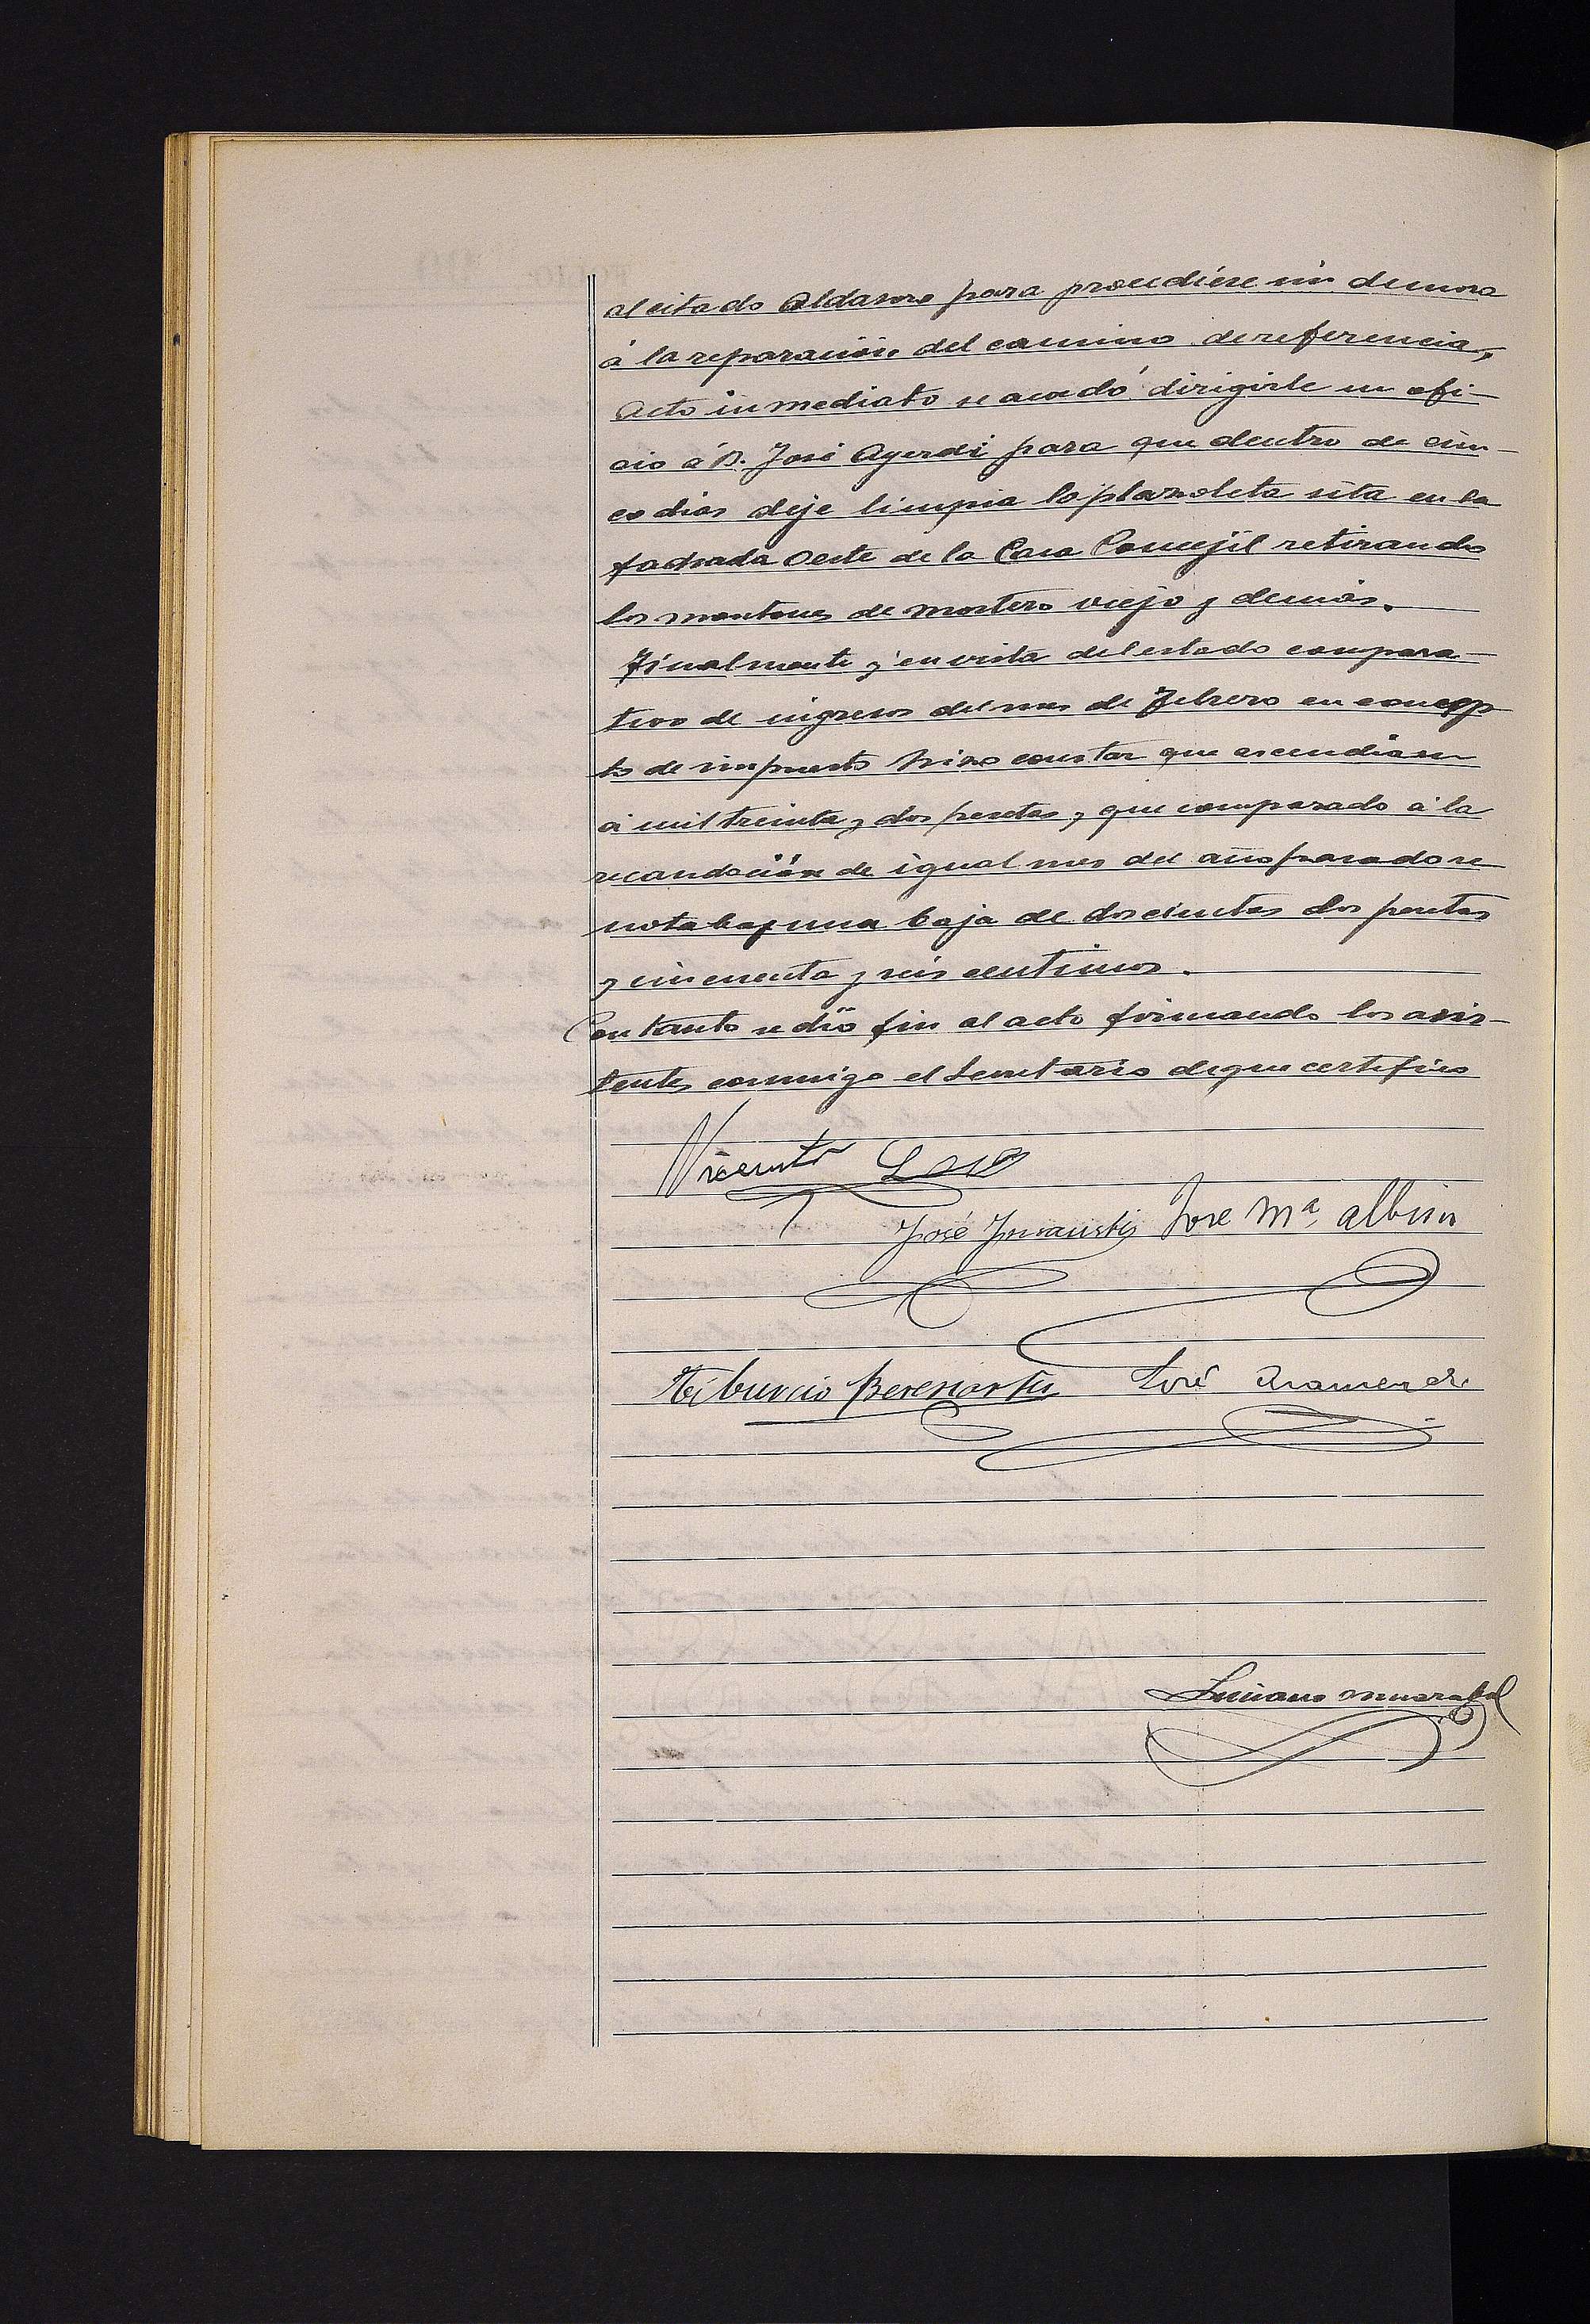 al citado Aldasoro para procediese sin demora
á la reparación del camino de referencia,
Acto inmediato se acordó dirigirle un ofi-
cio á D. José Ayerdi para que dentro de cin-
co dias deje limpia la plazoleta sita en la
fachada Oeste de la Casa Concejil retirando
los montones de mortero viejo y demás.
Finalmente y en vista del estado compara-
tivo de ingresos del mes de Febrero en concep
to de impuesto hizo constar que ascendian
á mil treinta y dos pesetas y que comparado á la
recaudación de igual mes del año pasado se
notaba una baja de doscientas dos pesetas
y cincuenta y seis centimos.
Con tanto se dió fin al acto firmando los asis-
tentes conmigo el Secretario de que certifico
Vicente Lasa
José Insausti José Mª Albisu
Tiburcio Beresiartu José Aramendi
Luciano